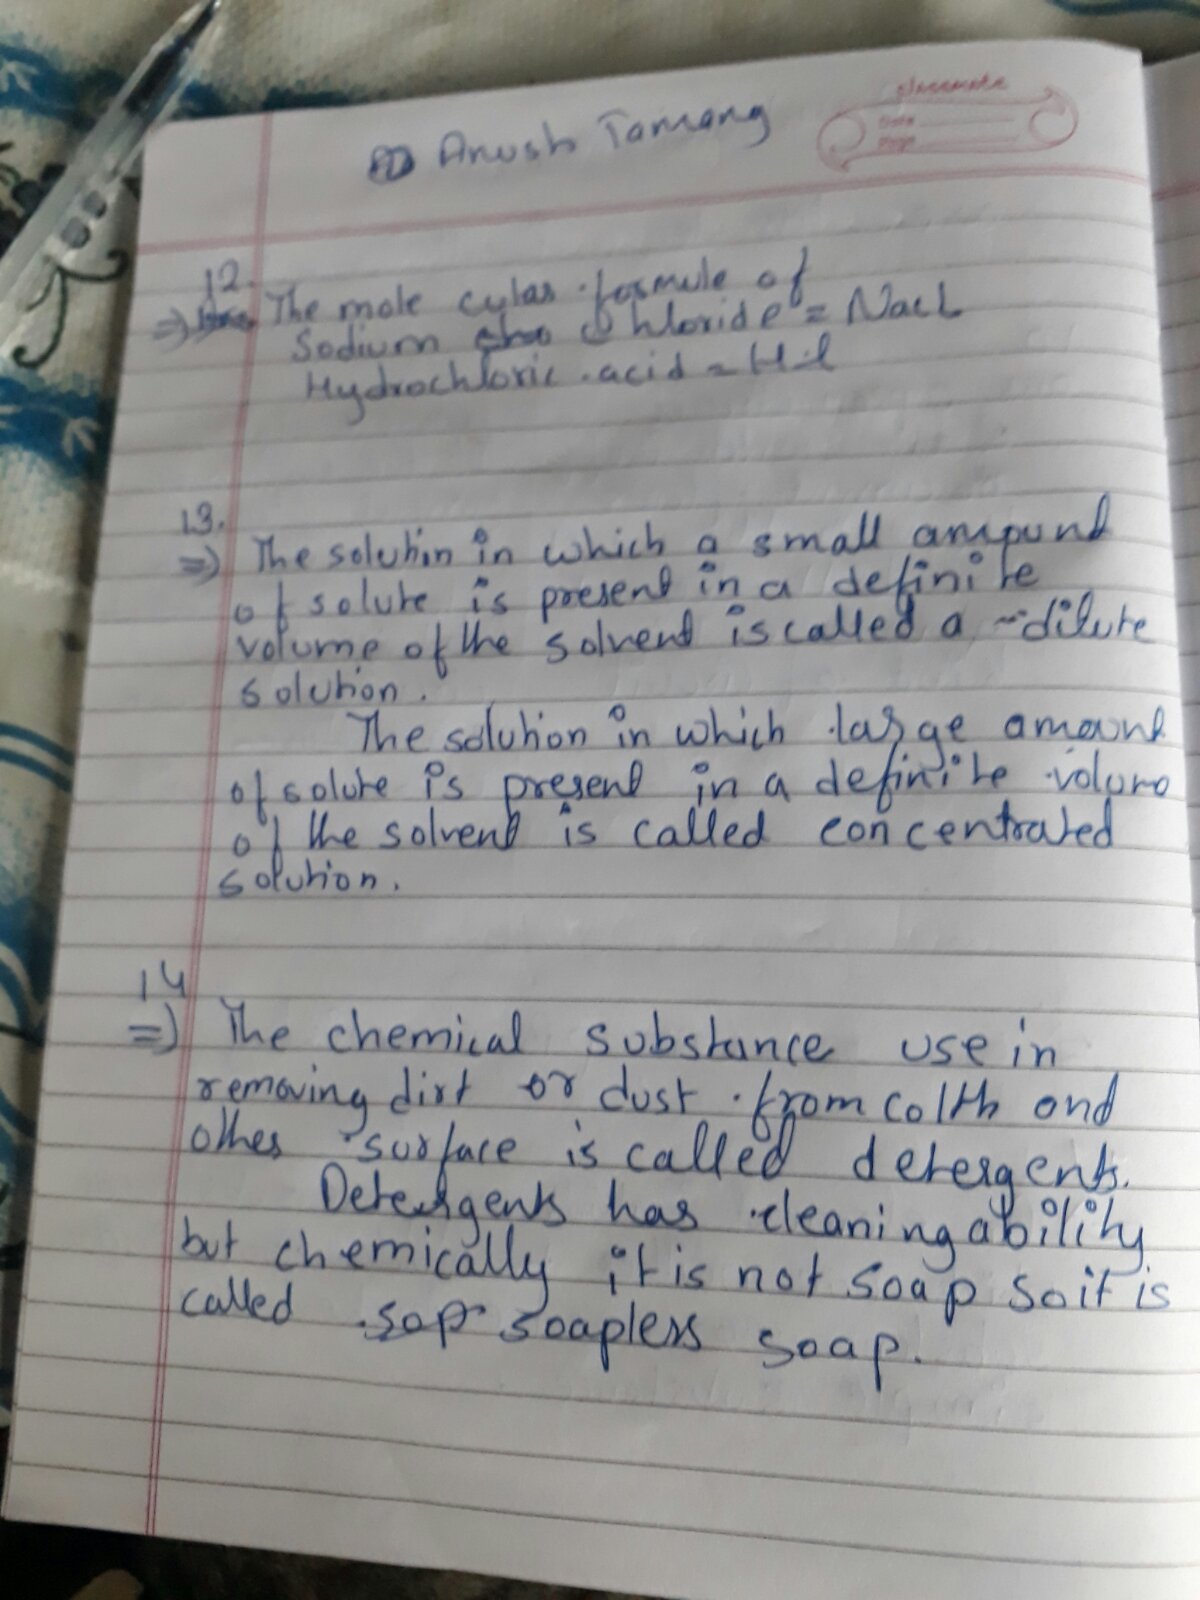 classmate
Date
Page
Anush Tamang
12.
=) The mole cular formule of
Sodium Chloride = NacL
Hydrochloric acid = Hcl
13.
=) The solution in which a small amount
of solute is present in a definite
volume of the solvent is called a dilute
solution.
The solution in which large amount
of solute is present in a definite volume
of the solvent is called concentrated
solution.
14
=) The chemical substance use in
removing dirt or dust from colth and
other surface is called detergents.
Detergents has cleaning ability
but chemically it is not soap so it is
called sop soapless soap.